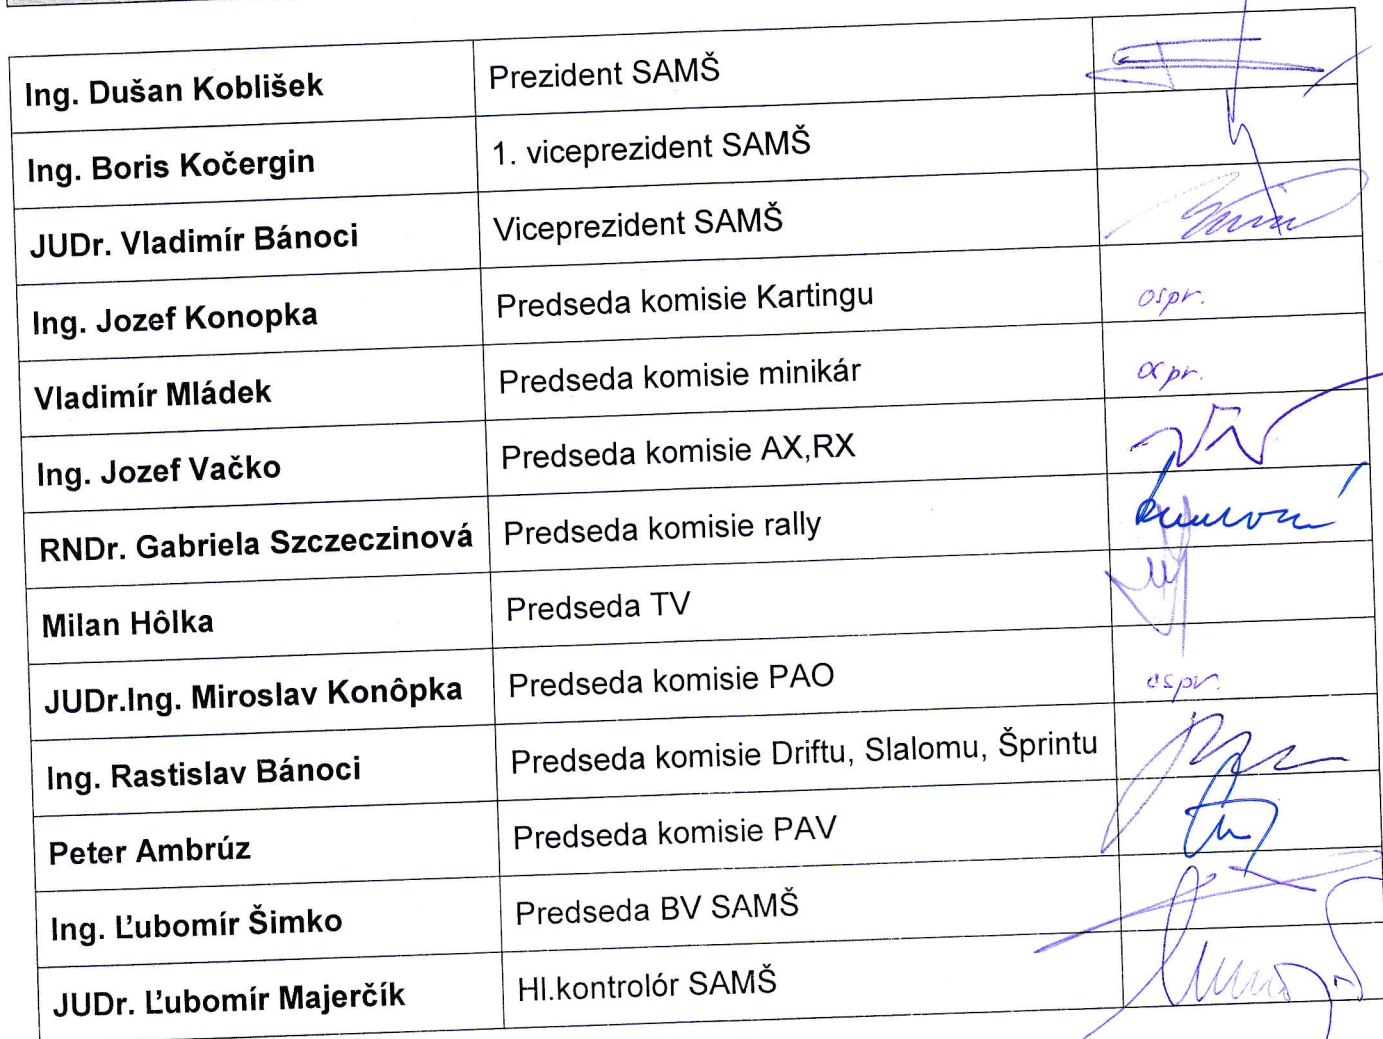 Ing. Dušan Koblišek Prezident SAMŠ
Ing. Boris Kočergin 1. viceprezident SAMŠ
JUDr. Vladimír Bánoci Viceprezident SAMŠ
Ing. Jozef Konopka Predseda komisie Kartingu ospr.
Vladimír Mládek Predseda komisie minikár ospr.
Ing. Jozef Vačko Predseda komisie AX,RX
RNDr. Gabriela Szczeczinová Predseda komisie rally
Milan Hôlka Predseda TV
JUDr.Ing. Miroslav Konôpka Predseda komisie PAO ospr.
Ing. Rastislav Bánoci Predseda komisie Driftu, Slalomu, Šprintu
Peter Ambrúz Predseda komisie PAV
Ing. Ľubomír Šimko Predseda BV SAMŠ
JUDr. Ľubomír Majerčík Hl.kontrolór SAMŠ